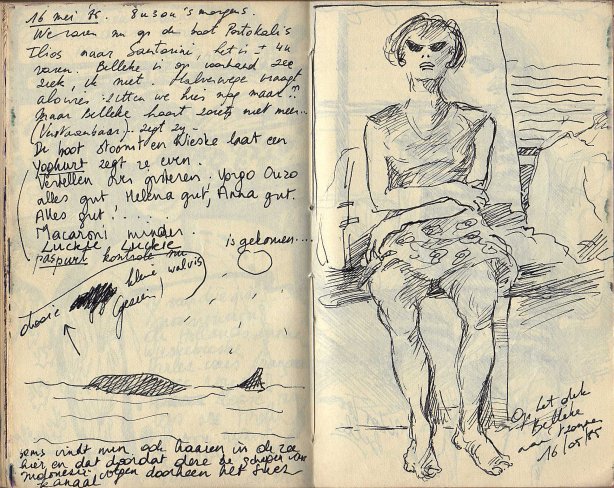 16 mei 85. 8u30u's morgens.
We varen nu op de boot Portokalis
Ilios naar Santorini, het is ± 4u
varen. Belleke is op voorhand zee
ziek, ik niet. Halverwege vraagt
zitten we hier nog maar?
Belleke haar zoiets niet meer...
(Verstaanbaar). Zegt zij.
De boot stoomt en Wieske laat een
Yoghurt zegt ze even.
Vertellen over gisteren. Yorgo Ouzo
alles gut, Helena gut, Anna gut.
Alles gut.....
Macaroni minder.
Luckie Luckie is gekomen....
paspurt kontrole nu
kleine walvis
(geen)
dooie
soms vindt men ook haaien in de zee
hier en dat doordat deze de schepen van
Indonesië volgen doorheen het Suez
kanaal
Op het dek
Belleke
naar
16/05/85